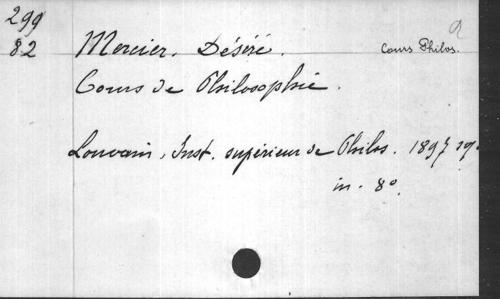 299
82 Mercier, Déséré. Cours Philos.
Cours de Philosophie.
Louvain, Inst. supérieur de Philos. 1897
in-8o.